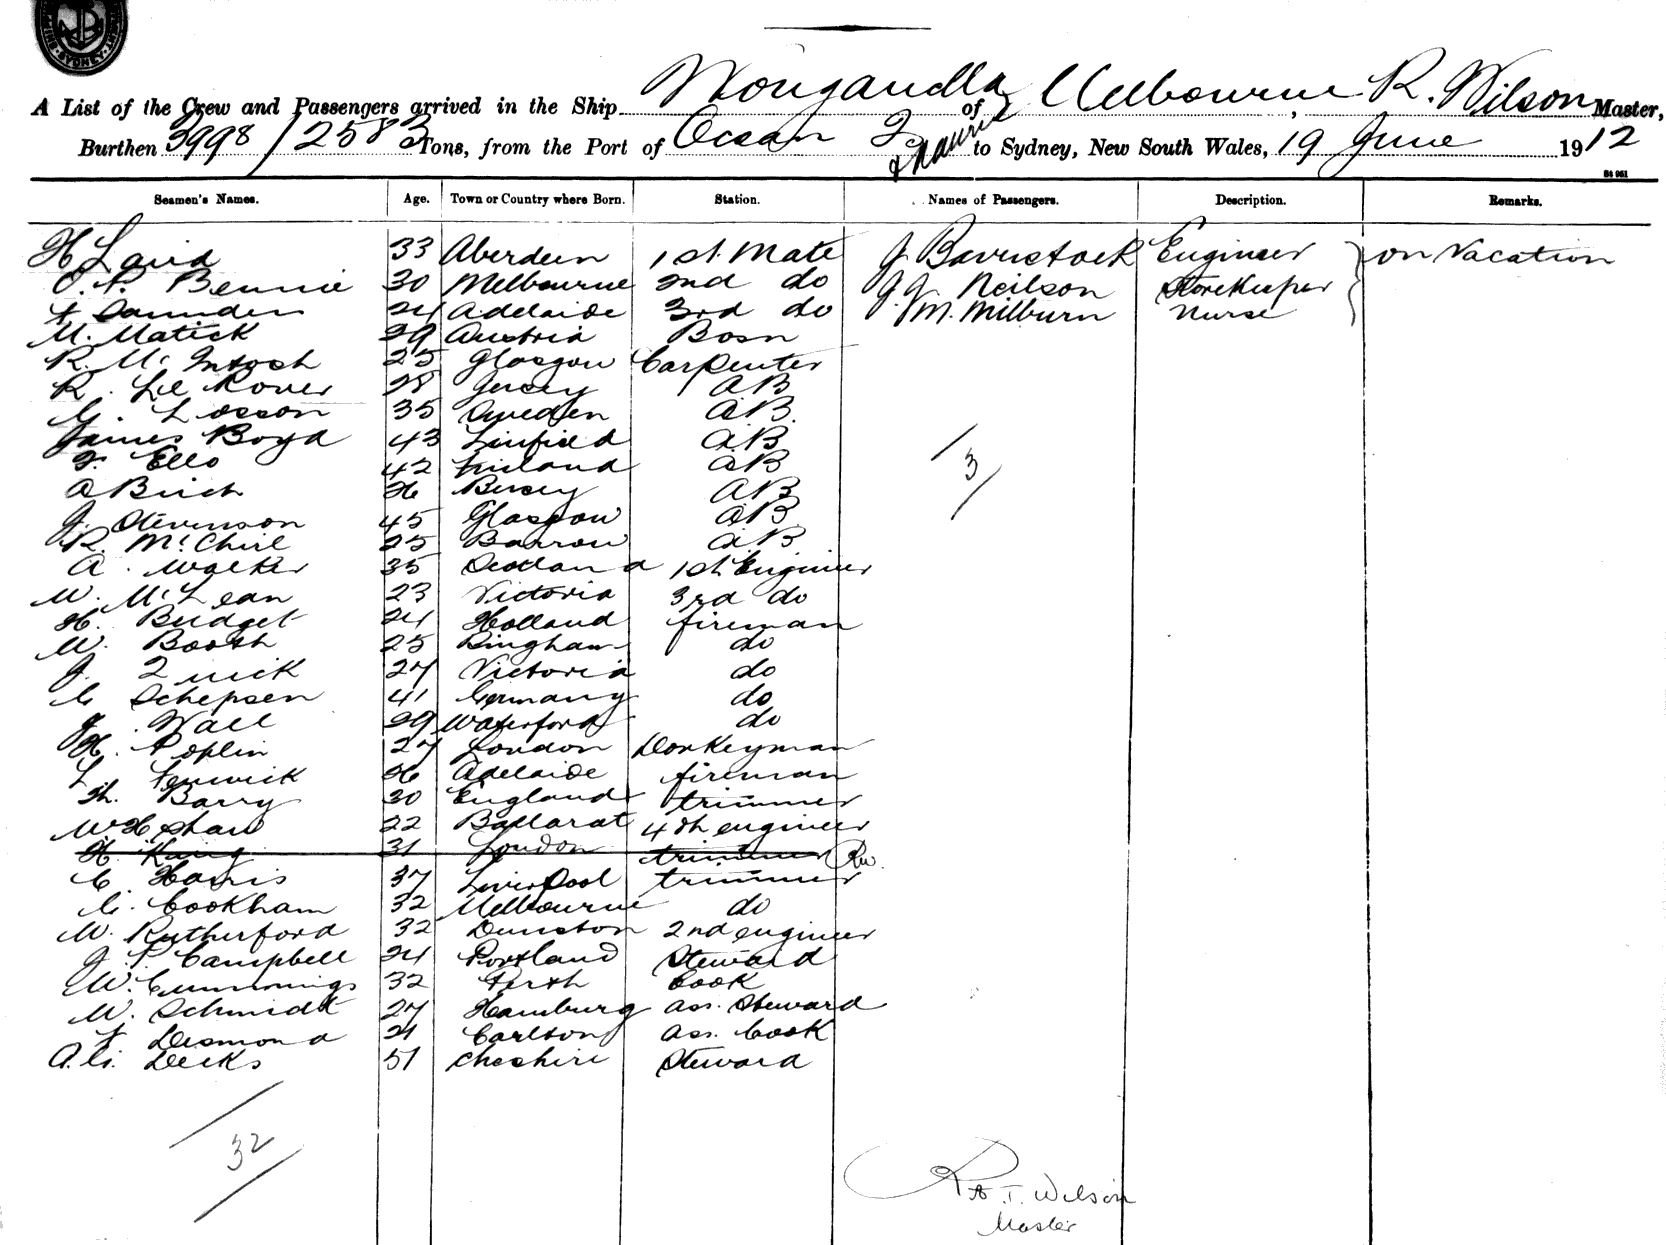 SYDNEY
A List of the Crew and Passengers arrived in the Ship Wonganella of Melbourne, R. Wilson Master,
Burthen 3998/2583 Tons, from the Port of Ocean I & Nauru to Sydney, New South Wales, 19 June 1912
St 951
Seamen's Names. Age. Town or Country where Born. Station. Names of Passengers. Description. Remarks.
H Laird 33 Aberdeen 1st Mate J Baverstock Engineer on Vacation
Bennie 30 Melbourne 2nd do J. J. Neilson Storekeeper
Saunders 24 Adelaide 3rd do M. Milburn Nurse
M. Matick 29 Austria Bosn
R. Mc Intosh 25 Glasgow Carpenter
R. Le Rouer 28 Jersey AB
Sweden AB
35
James Boyd 43 Linfield AB
Ello 42 Finland AB
A Birch 26 AB
J. Stevenson 45 Glasgow AB
R. 25 Barrow AB
A. Walker 35 Scotland 1st Engineer
W. McLean 23 Victoria 3rd do
H. Budget 24 Holland fireman
W. Booth 25 Bingham do
J. Quick 27 Victoria do
C Schepsen 41 Germany do
J. Wall 29 Waterford do
H. Poplin 27 London Donkeyman
L. Fenwick 26 Adelaide fireman
Th. Barry 30 England trimmer
W H Shaw 22 Ballarat 4th engineer
H. King 31 London trimmer RW.
C. Harris 37 Liverpool trimmer
G. Cookham 32 Melbourne do
W. Rutherford 32 Dunston 2nd engineer
J. P. Campbell 24 Portland Steward
W. Cummings 32 Perth Cook
W. Schmidt 27 Hamburg ass. Steward
F Desmond 21 Carlton ass. Cook
A. G. Deeks 51 Cheshire Steward
3
32
R. T. Wilson
Master